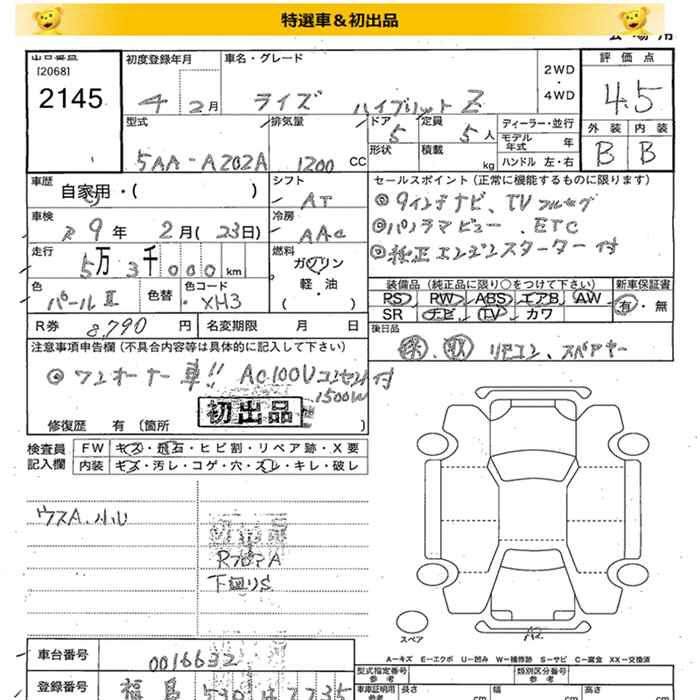 特選車&初出品
出品番号 初度登録年月 車名・グレード 2WD・4WD 評価点
[2068]
2145 4 2月 ライズ ハイブリット Z 4.5
型式 排気量 ドア 5 定員 5人 ディーラー・並行 外装 内装
5AA-A202A 1200 CC 形状 積載 kg モデル年式 年 B B
ハンドル 左・右
車歴 自家用・( ) シフト AT セールスポイント(正常に機能するものに限ります)
車検 R9年 2月(23日) 冷房 AAC ◎9インチナビ、TVフルセグ
◎パノラマビュー、ETC
走行 5万3千000km 燃料 ガソリン 軽・油 ◎純正エンジンスターター付
色 パールII 色替 色コード XH3 装備品(純正品に限り○をつけて下さい) 新車保証書
PS RW ABS エアB AW 有・無
SR ナビ TV カワ
R券 8,790円 名変期限 月 日 後日品
注意事項申告欄(不具合内容等は具体的に記入して下さい) 保、取 リモコン、スペアキー
◎ワンオーナー車!! AC100Vコンセント付
1500W
初出品
修復歴 有(箇所 )
検査員記入欄 FW キズ・飛石・ヒビ割・リペア跡・X要
内装 キズ・汚レ・コゲ・穴・スレ・キレ・破レ
ウスA、小U
RフロアA
下廻りS
スペア
A2
A-キズ E-エクボ U-凹み W-補修跡 S-サビ C-腐食 XX-交換済
車台番号 0016632 型式指定番号 参考 類別区分番号 参考
登録番号 福島 530 車庫証明用 参考 長さ cm 幅 cm 高さ cm